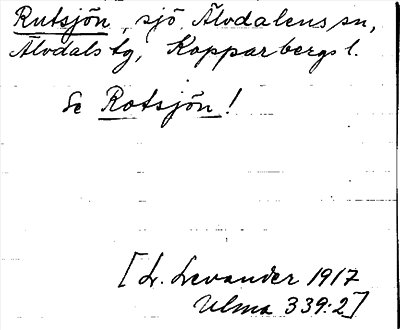 Rutsjön, sjö, Älvdalens sn,
Älvdals tg, Kopparbergs l.
Se Rotsjön!
[L. Levander 1917
Ulma 339:2]